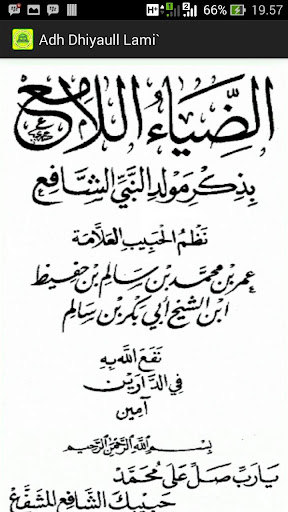 66% 19.57
Adh Dhiyaull Lami`
الضِّيَاءُ اللَّامِعُ
بِذِكْرِ مَوْلِدِ النَّبِيِّ الشَّافِعِ
نَظْمُ الْحَبِيبِ الْعَلَّامَةِ
عُمَرَ بْنِ مُحَمَّدِ بْنِ سَالِمِ بْنِ حَفِيظٍ
ابْنِ الشَّيْخِ أَبِي بَكْرِ بْنِ سَالِمٍ
نَفَعَ اللهُ بِهِ
فِي الدَّارَيْنِ
آمِين
بِسْمِ اللهِ الرَّحْمَنِ الرَّحِيمِ
يَارَبِّ صَلِّ عَلَى مُحَمَّدْ
حَبِيبِكَ الشَّافِعِ الْمُشَفَّعْ